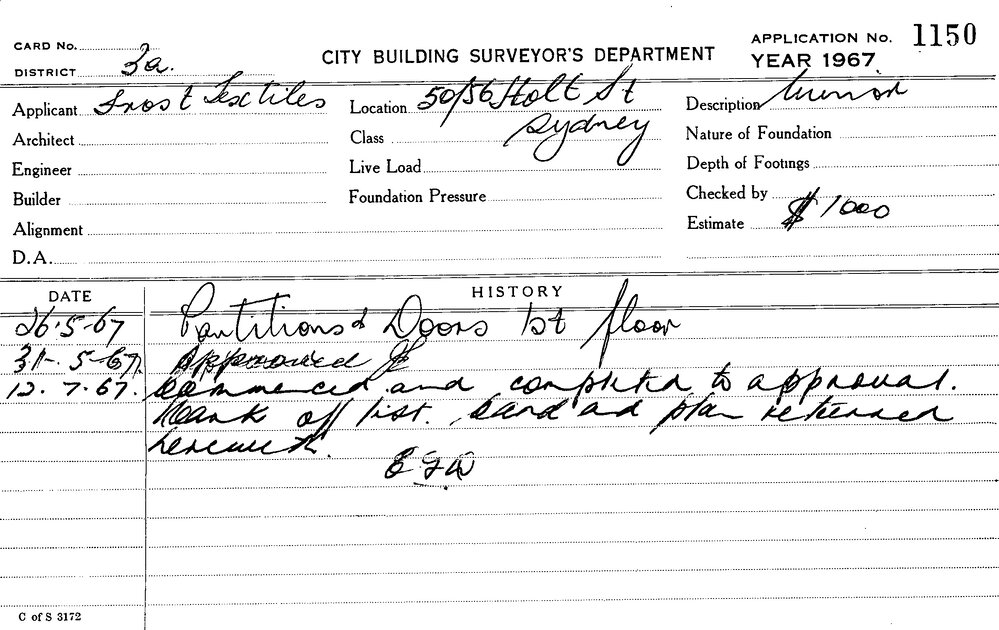 CARD No.
CITY BUILDING SURVEYOR'S DEPARTMENT
APPLICATION No. 1150
DISTRICT 3a.
YEAR 1967
Applicant Frost Textiles
Location 50/56 Holt St
Description Minor
Architect
Class Sydney
Nature of Foundation
Engineer
Live Load
Depth of Footings
Builder
Foundation Pressure
Checked by
Alignment
Estimate $1000
D.A.
DATE
HISTORY
26.5.67 Partitions & Doors 1st floor
31.5.67 Approved
12.7.67. Commenced and completed to approval.
Mark off list. Card and plan returned
herewith.
EGW
C of S 3172